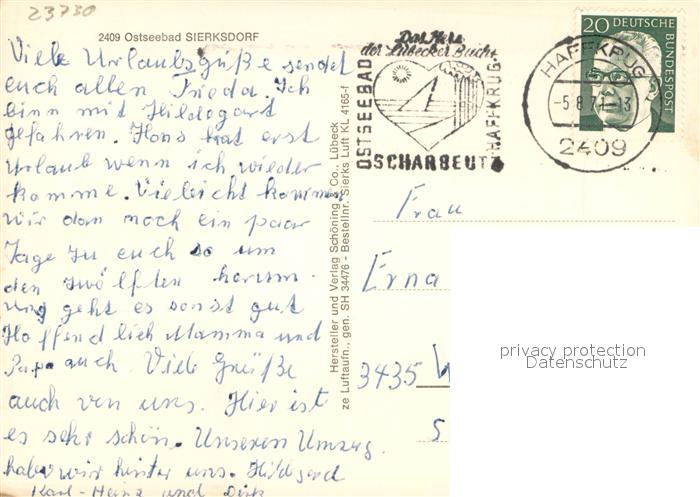 23730
2409 Ostseebad SIERKSDORF
Viele Urlaubsgrüße sendet
euch allen Frieda. Ich
binn mit Hildegard
gefahren. Hans hat erst
Urlaub wenn ich wieder
komme. Vieleicht kommen
wir dan noch ein paar
Tage zu euch so um
den zwölften herum.
uns geht es sonst gut
Hoffendlich Mamma und
Papa auch. Viele Grüße
auch von uns. Hier ist
es sehr schön. Unseren Umzug
haben wir hinter uns. Hildegard
Karl-Heinz und Dirk
Hersteller und Verlag Schöning & Co., Lübeck
ze Luftaufn., gen. SH 34476 - Bestellnr. Sierks Luft KL 4165-f
Das Herz
der Lübecker Bucht
OSTSEEBAD
HAFFKRUG
SCHARBEUTZ
HAFFKRUG
-5.8.71-13
2409
20 DEUTSCHE
BUNDESPOST
Frau
Erna
3435 W
S
privacy protection
Datenschutz